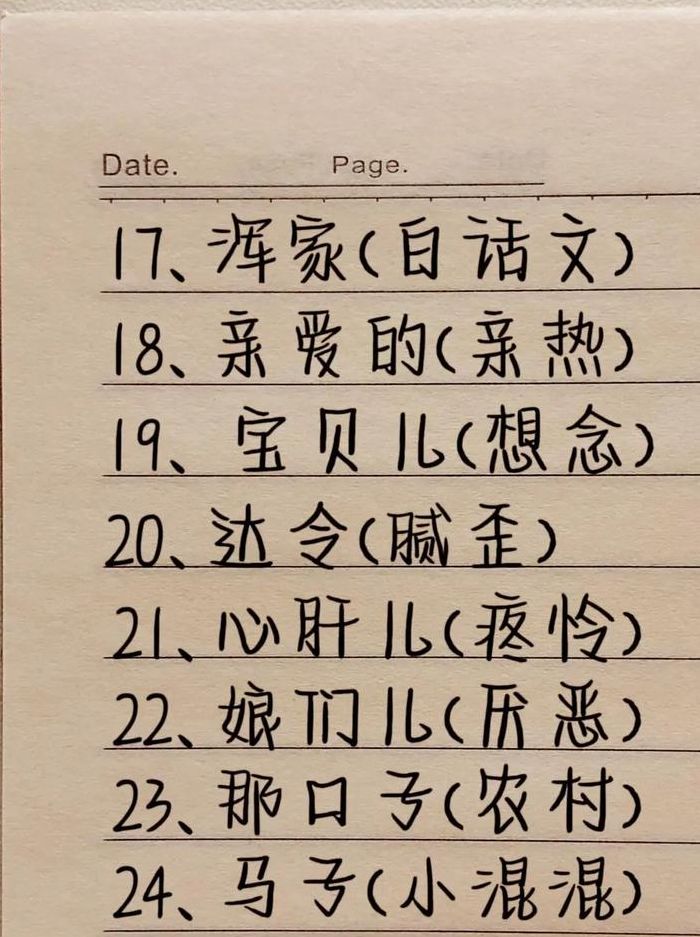 Date. Page.
17、浑家(白话文)
18、亲爱的(亲热)
19、宝贝儿(想念)
20、达令(腻歪)
21、心肝儿(疼怜)
22、娘们儿(厌恶)
23、那口子(农村)
24、马子(小混混)